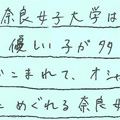 奈良女子大学は
優しい子が多
こまれて、オシャ
めぐれる奈良女